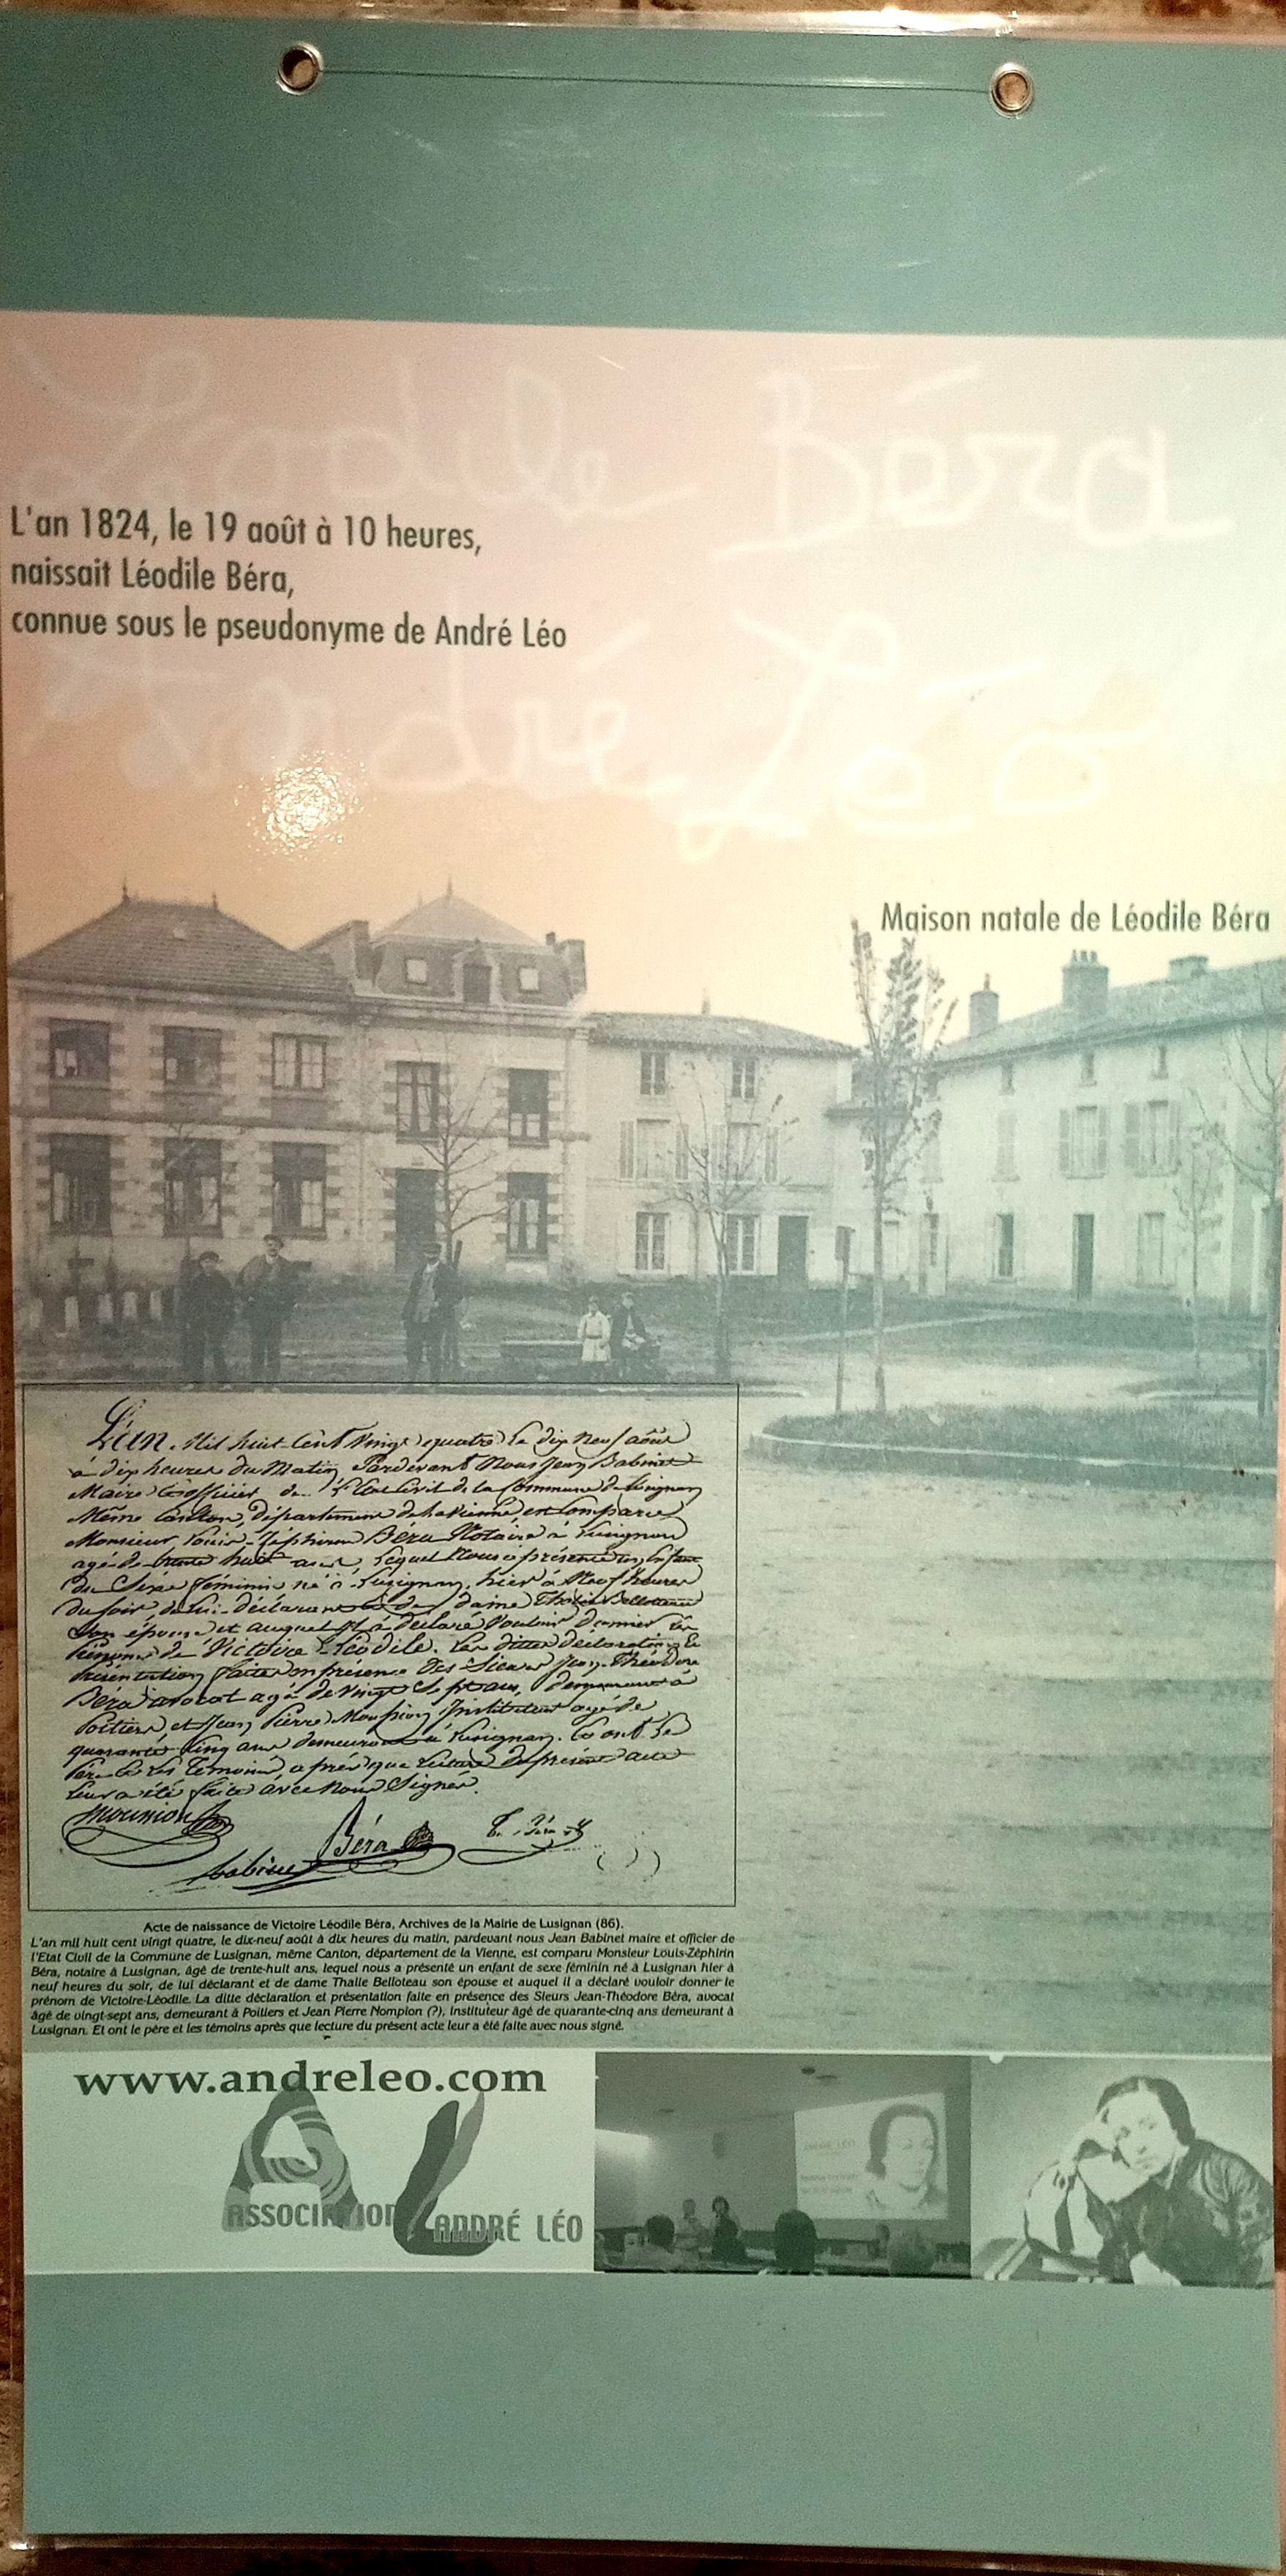 Léodile Béra
L'an 1824, le 19 août à 10 heures,
naissait Léodile Béra,
connue sous le pseudonyme de André Léo
André Léo
Maison natale de Léodile Béra
L'an Mil huit Cent Vingt quatre le dix Neuf août
à dix heures du Matin Pardevant Nous Jean Babinet
Maire & officier de l'Etat Civil de la Commune de Lusignan
Même Canton, département de la Vienne, est Comparu
Monsieur Louis-Zéphirin Béra Notaire à Lusignan
agé de trente huit ans, Lequel Nous a présenté un Enfant
du Sexe féminin né à Lusignan, hier à Neuf heures
du soir, de Lui déclarant et de dame Thalie Belloteau
son épouse et auquel il a déclaré Vouloir donner les
Prénoms de Victoire Léodile. Les dittes déclaration &
Présentation faites en présence des Sieurs Jean-Théodore
Béra avocat agé de Vingt Sept ans, demeurant à
Poitiers, et Jean Pierre Instituteur agé de
quarante Cinq ans demeurant à Lusignan. Et ont Le
Père & les Témoins, après que Lecture du présent acte
leur a été faite avec Nous Signé.
Béra
T. Béra
Babinet
Acte de naissance de Victoire Léodile Béra, Archives de la Mairie de Lusignan (86).
L'an mil huit cent vingt quatre, le dix-neuf août à dix heures du matin, pardevant nous Jean Babinet maire et officier de
l'Etat Civil de la Commune de Lusignan, même Canton, département de la Vienne, est comparu Monsieur Louis-Zéphirin
Béra, notaire à Lusignan, âgé de trente-huit ans, lequel nous a présenté un enfant de sexe féminin né à Lusignan hier à
neuf heures du soir, de lui déclarant et de dame Thalie Belloteau son épouse et auquel il a déclaré vouloir donner le
prénom de Victoire-Léodile. La ditte déclaration et présentation faite en présence des Sieurs Jean-Théodore Béra, avocat
âgé de vingt-sept ans, demeurant à Poitiers et Jean Pierre Nompion (?), instituteur âgé de quarante-cinq ans demeurant à
Lusignan. Et ont le père et les témoins après que lecture du présent acte leur a été faite avec nous signé.
www.andreleo.com
ASSOCIATION ANDRÉ LÉO
ANDRÉ LÉO